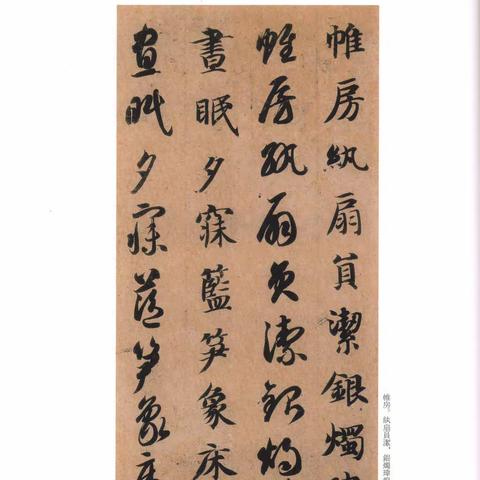 帷房紈扇員潔銀燭
帷房紈扇員潔銀燭
晝眠夕寐藍笋象床
晝眠夕寐藍笋象床
帷房。紈扇員潔,銀燭煒